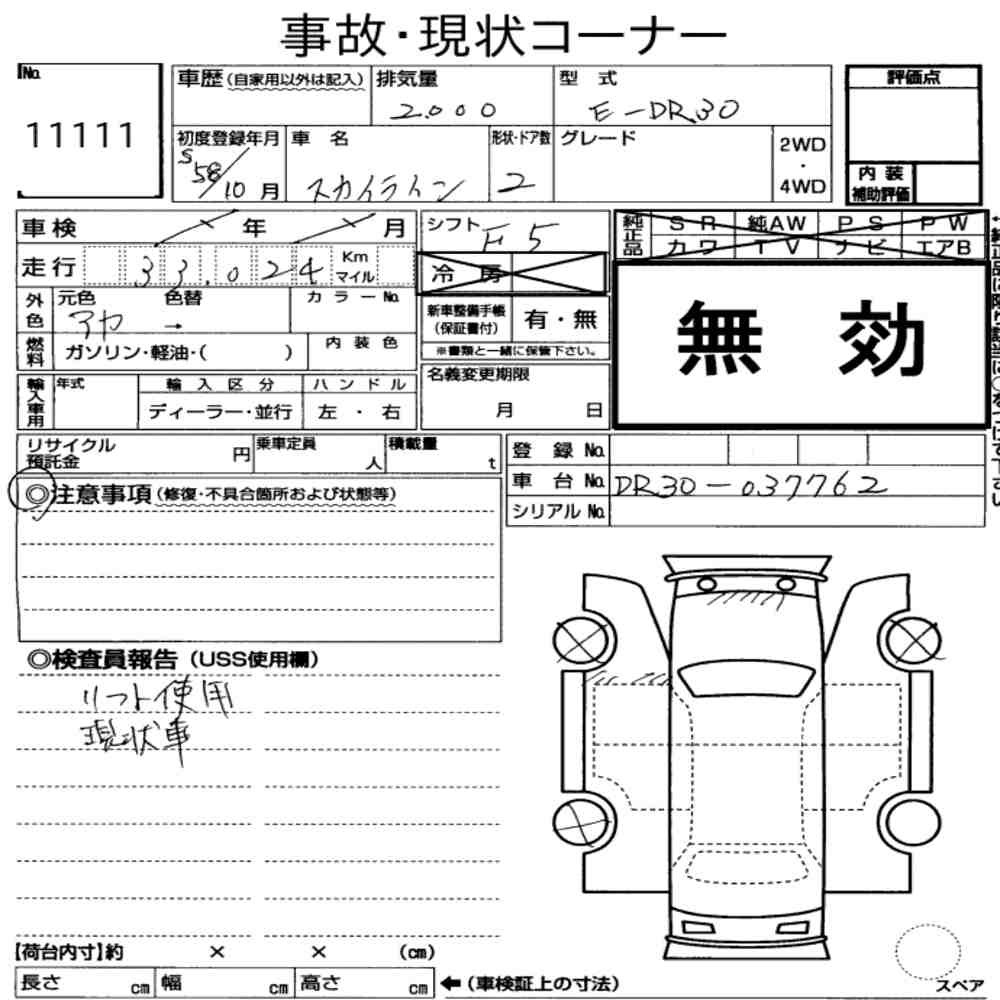 事故・現状コーナー
No. 11111
車歴(自家用以外は記入)
排気量 2000
型 式 E-DR30
評価点
初度登録年月 S58/10月
車 名 スカイライン
形状・ドア数 2
グレード
2WD・4WD
内 装
補助評価
車検 年 月
シフト F5
純正品 SR 純AW PS PW
カワ TV ナビ エアB
走行 33.024 Km マイル
冷 房
無 効
外色 元色 色替 カラーNo.
アカ →
新車整備手帳
(保証書付) 有・無
※書類と一緒に保管下さい。
燃料 ガソリン・軽油・( ) 内装色
名義変更期限
月 日
輸入車用 年式 輸入区分 ハンドル
ディーラー・並行 左・右
リサイクル
預託金 円
乗車定員 人
積載量 t
登 録 No.
車 台 No. DR30-037762
シリアル No.
◎注意事項(修復・不具合箇所および状態等)
◎検査員報告(USS使用欄)
リフト使用
現状車
【荷台内寸】約 × × (cm)
長さ cm 幅 cm 高さ cm ←(車検証上の寸法)
スペア